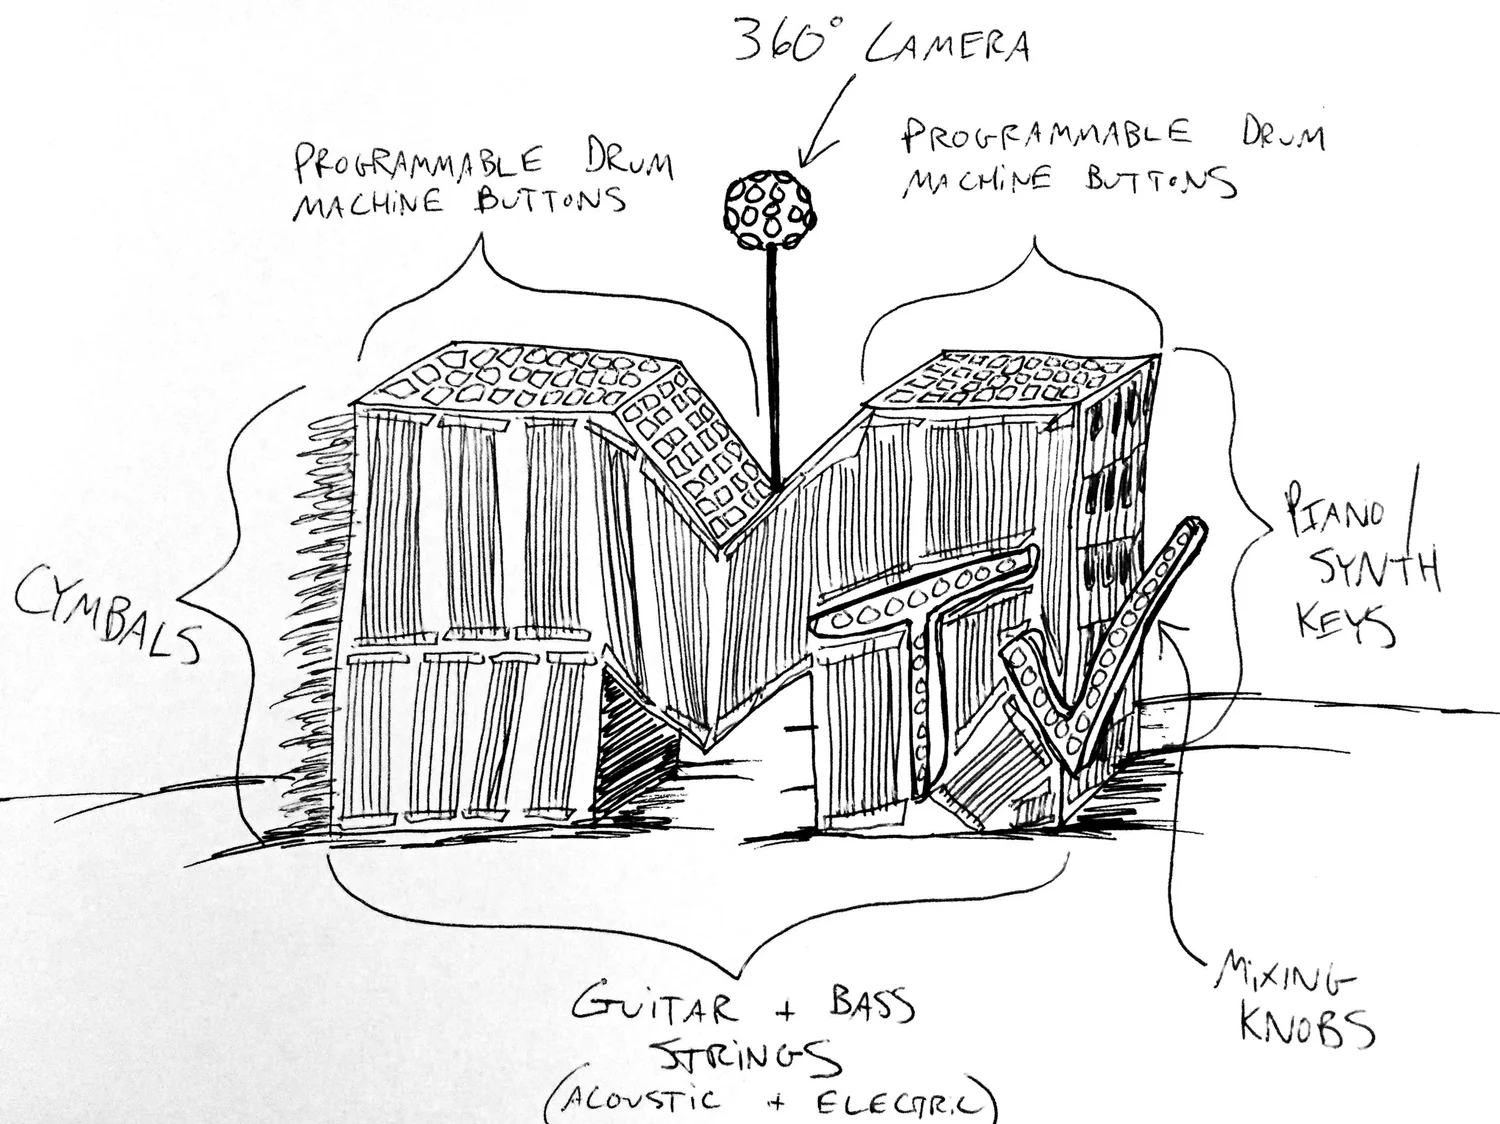 360° CAMERA
PROGRAMMABLE DRUM
MACHINE BUTTONS
PROGRAMMABLE DRUM
MACHINE BUTTONS
CYMBALS
PIANO/
SYNTH
KEYS
MTV
MIXING
KNOBS
GUITAR + BASS
STRINGS
(ACOUSTIC + ELECTRIC)